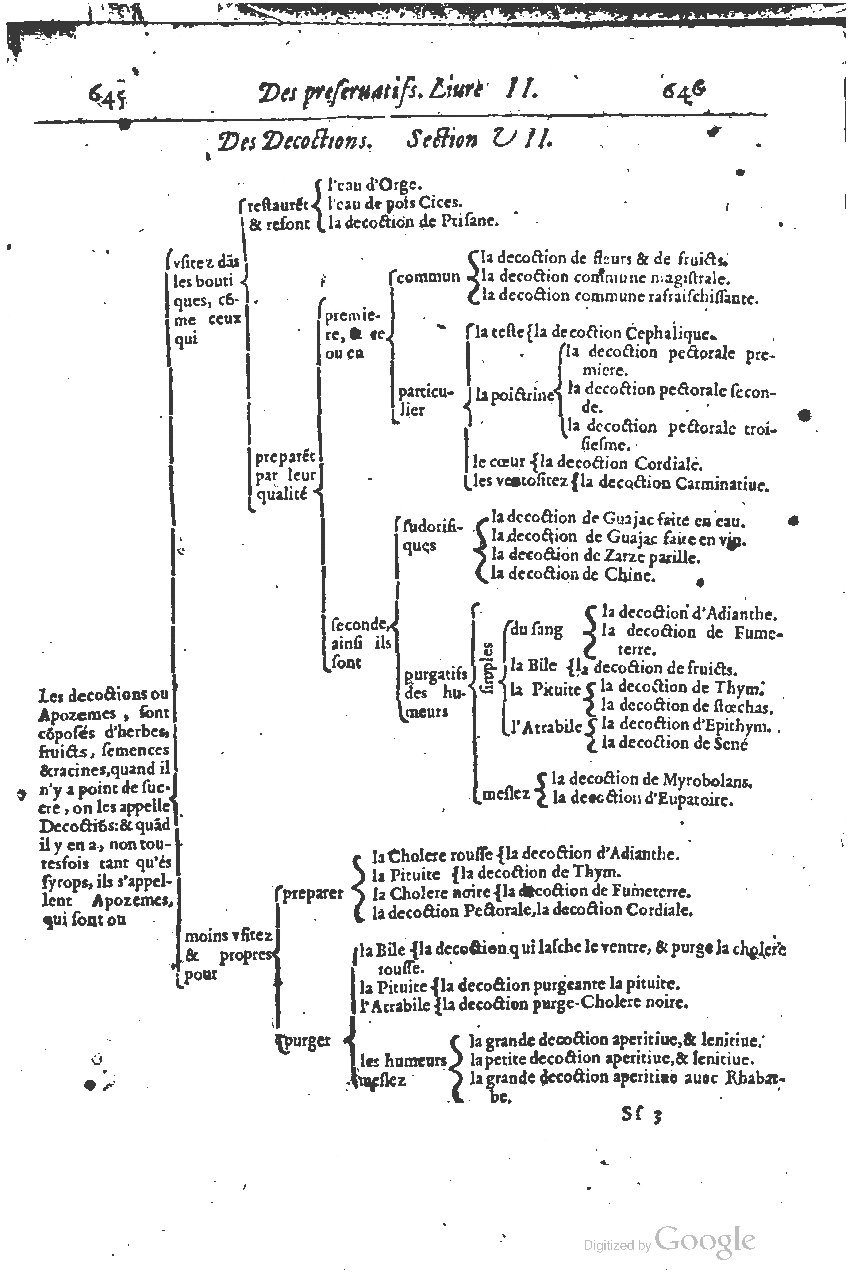 645 Des preseruatifs. Liure II. 646
Des Decoctions. Section VII.
Les decoctions ou
Apozemes, sont
cõposés d'herbes,
fruicts, semences
&racines,quand il
n'y a point de suc-
cre, on les appelle
Decoctiõs:& quãd
il y en a, non tou-
tesfois tant qu'és
syrops, ils s'appel-
lent Apozemes,
qui sont ou
vsitez dãs
les bouti
ques, cõ-
me ceux
qui
restaurẽt
& refont
l'eau d'Orge.
l'eau de pois Cices.
la decoction de Ptisane.
preparẽt
par leur
qualité
premie-
re, & ce
ou en
commun
la decoction de fleurs & de fruicts.
la decoction commune magistrale.
la decoction commune rafraischissante.
particu-
lier
la teste {la decoction Cephalique.
la poictrine
la decoction pectorale pre-
miere.
la decoction pectorale secon-
de.
la decoction pectorale troi-
siesme.
le cœur {la decoction Cordiale.
les ventositez {la decoction Carminatiue.
seconde,
ainsi ils
sont
sudorifi-
ques
la decoction de Guajac faite en eau.
la decoction de Guajac faite en vin.
la decoction de Zarze parille.
la decoction de Chine.
purgatifs
des hu-
meurs
simples
du sang
la decoction d'Adianthe.
la decoction de Fume-
terre.
la Bile {la decoction de fruicts.
la Pituite
la decoction de Thym.
la decoction de stœchas.
l'Atrabile
la decoction d'Epithym.
la decoction de Sené
meslez
la decoction de Myrobolans.
la decoction d'Eupatoire.
moins vsitez
& propres
pour
preparer
la Cholere rousse {la decoction d'Adianthe.
la Pituite {la decoction de Thym.
la Cholere noire {la decoction de Fumeterre.
la decoction Pectorale,la decoction Cordiale.
purger
la Bile {la decoction qui lasche le ventre, & purge la cholere
rousse.
la Pituite {la decoction purgeante la pituite.
l'Atrabile {la decoction purge-Cholere noire.
les humeurs
meslez
la grande decoction aperitiue,& lenitiue.
la petite decoction aperitiue,& lenitiue.
la grande decoction aperitiue auec Rhabar-
be.
Sf 3
Digitized by Google